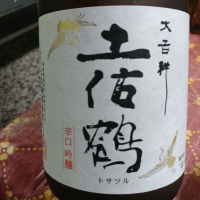 大吉祥
土佐鶴
辛口 吟醸
トサツル